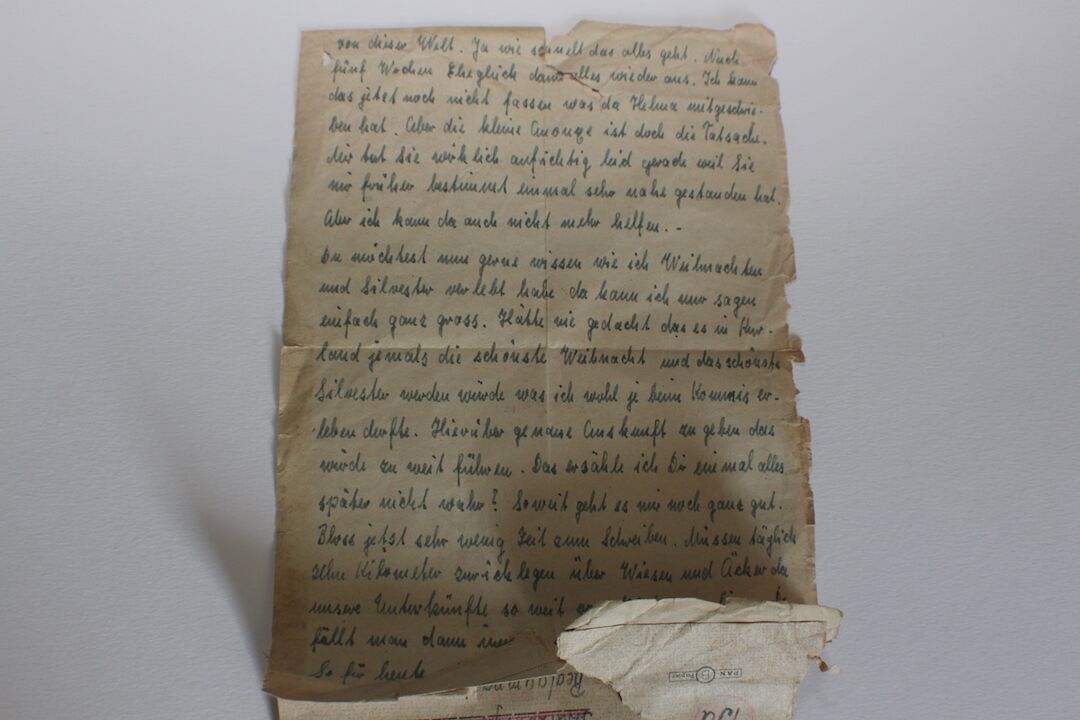 von dieser Welt. Ja wie schnell das alles geht. Nach
fünf Wochen Eheglück dann alles wieder aus. Ich kann
das jetzt noch nicht fassen was da Helma mitgeschrie-
ben hat. Aber die kleine Anonge ist doch die Tatsache.
Mir tut Sie wirklich aufichtig leid gerade weil Sie
mir früher bestimmt einmal sehr nahe gestanden hat.
Aber ich kann da auch nicht mehr helfen. -
Du möchtest nun gerne wissen wie ich Weihnachten
und Silvester verlebt habe da kann ich nur sagen
einfach ganz gross. Hätte nie gedacht das es in Kur-
land jemals die schönste Weihnacht und das schönste
Silvester werden würde was ich wohl je beim Kommis er-
leben durfte. Hierüber genaue Auskunft zu geben das
würde zu weit führen. Das erzähle ich Dir einmal alles
später nicht wahr? Soweit geht es mir noch ganz gut.
Bloss jetzt sehr wenig Zeit zum Schreiben. Müssen täglich
zehn Kilometer zurücklegen über Wiesen und Äcker da
unsere Unterkünfte so weit
fällt man dann
So für heute
PAN B Papier